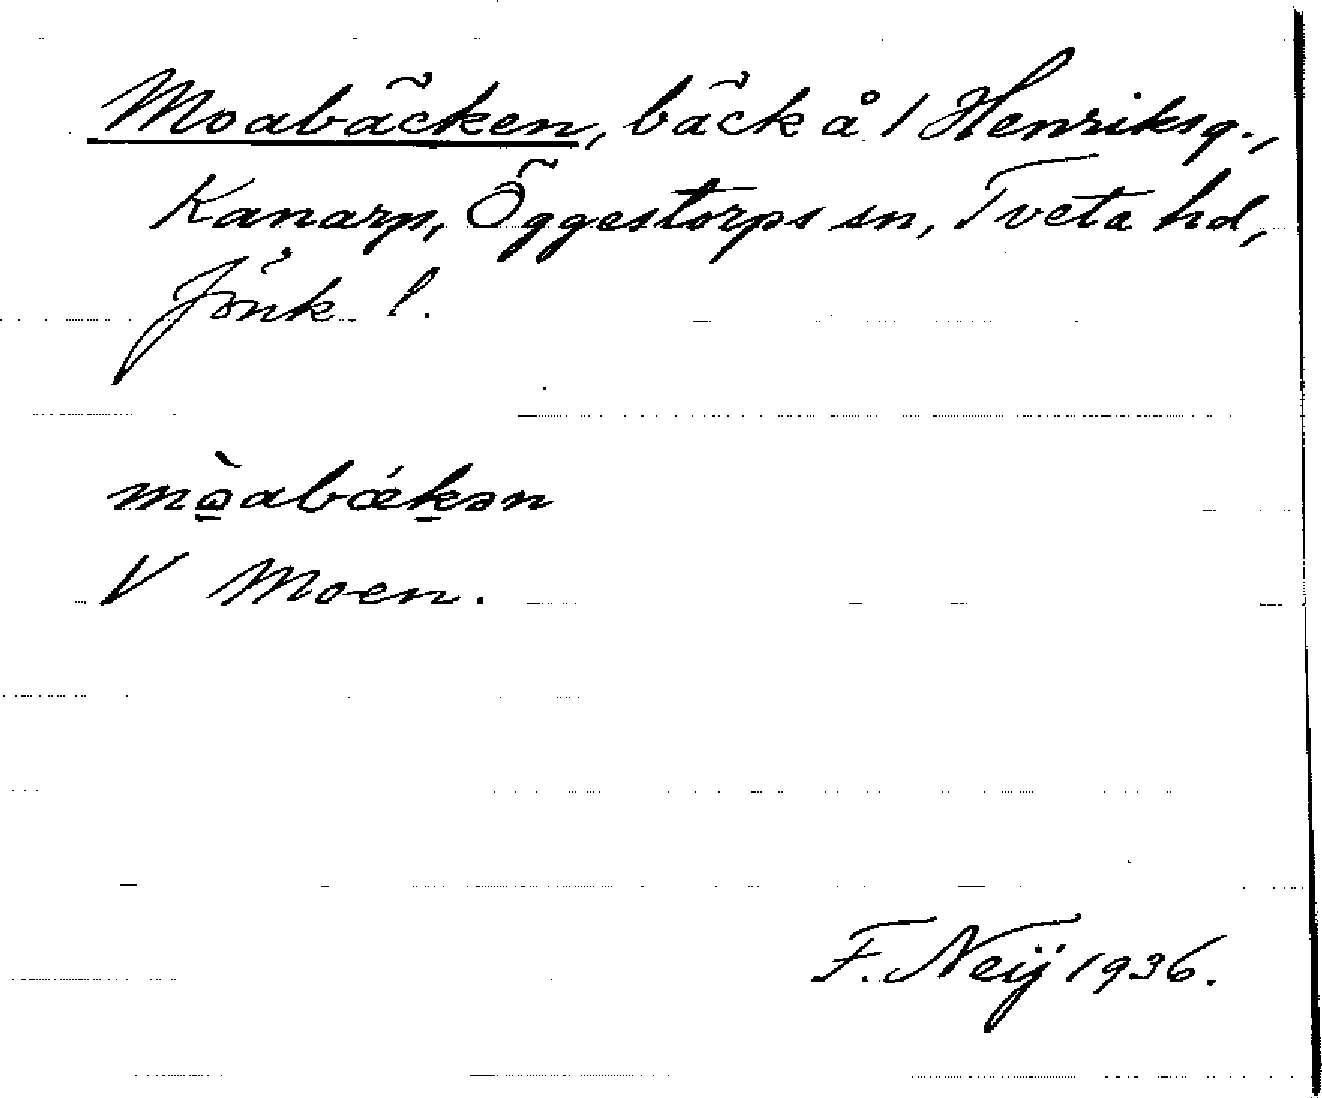 Moabäcken, bäck å 1 Henriksg.,
Kanarp, Öggestorps sn, Tveta hd,
Jönk l.
mò̱abǽḵən
V Moen.
F. Neij 1936.